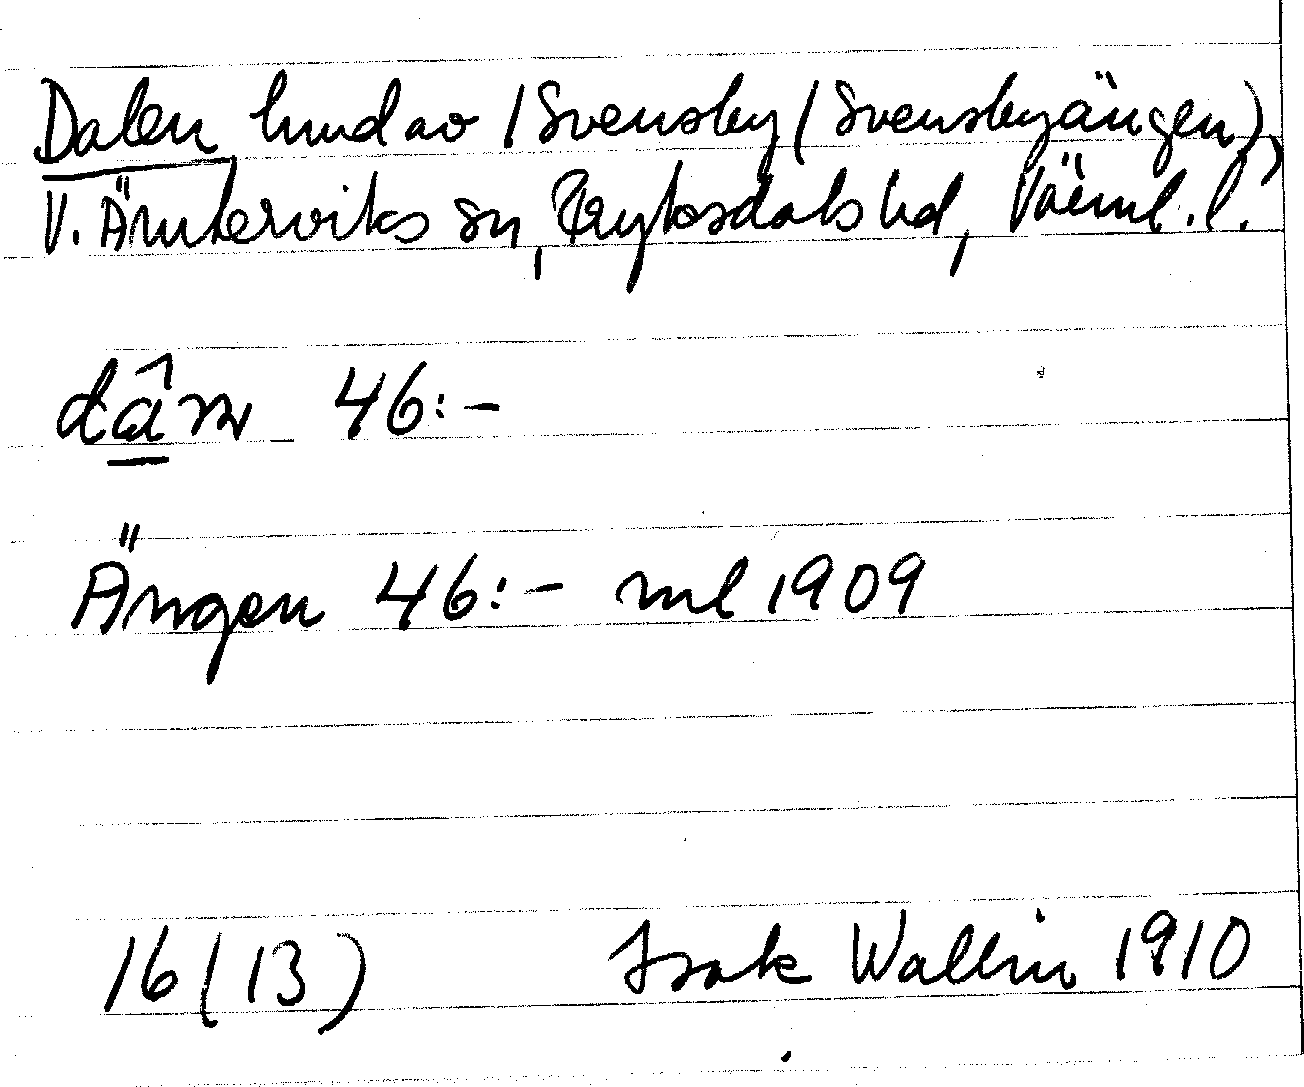 Dalen hmd av 1 Svensby (Svensbyängen),
V. Ämterviks sn, Fryksdals hd, Värml. l.
dâ̱n 46:-
Ängen 46:- ml 1909
16 (13) Isak Wallin 1910